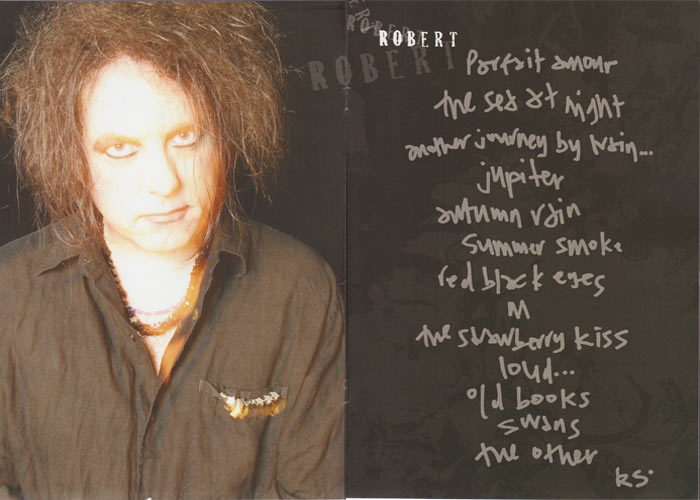 ROBERT
ROBERT
ROBERT
Parfait amour
the sea at night
another journey by train...
jupiter
autumn rain
summer smoke
red black eyes
M
the strawberry kiss
loud...
old books
swans
the other
RS.